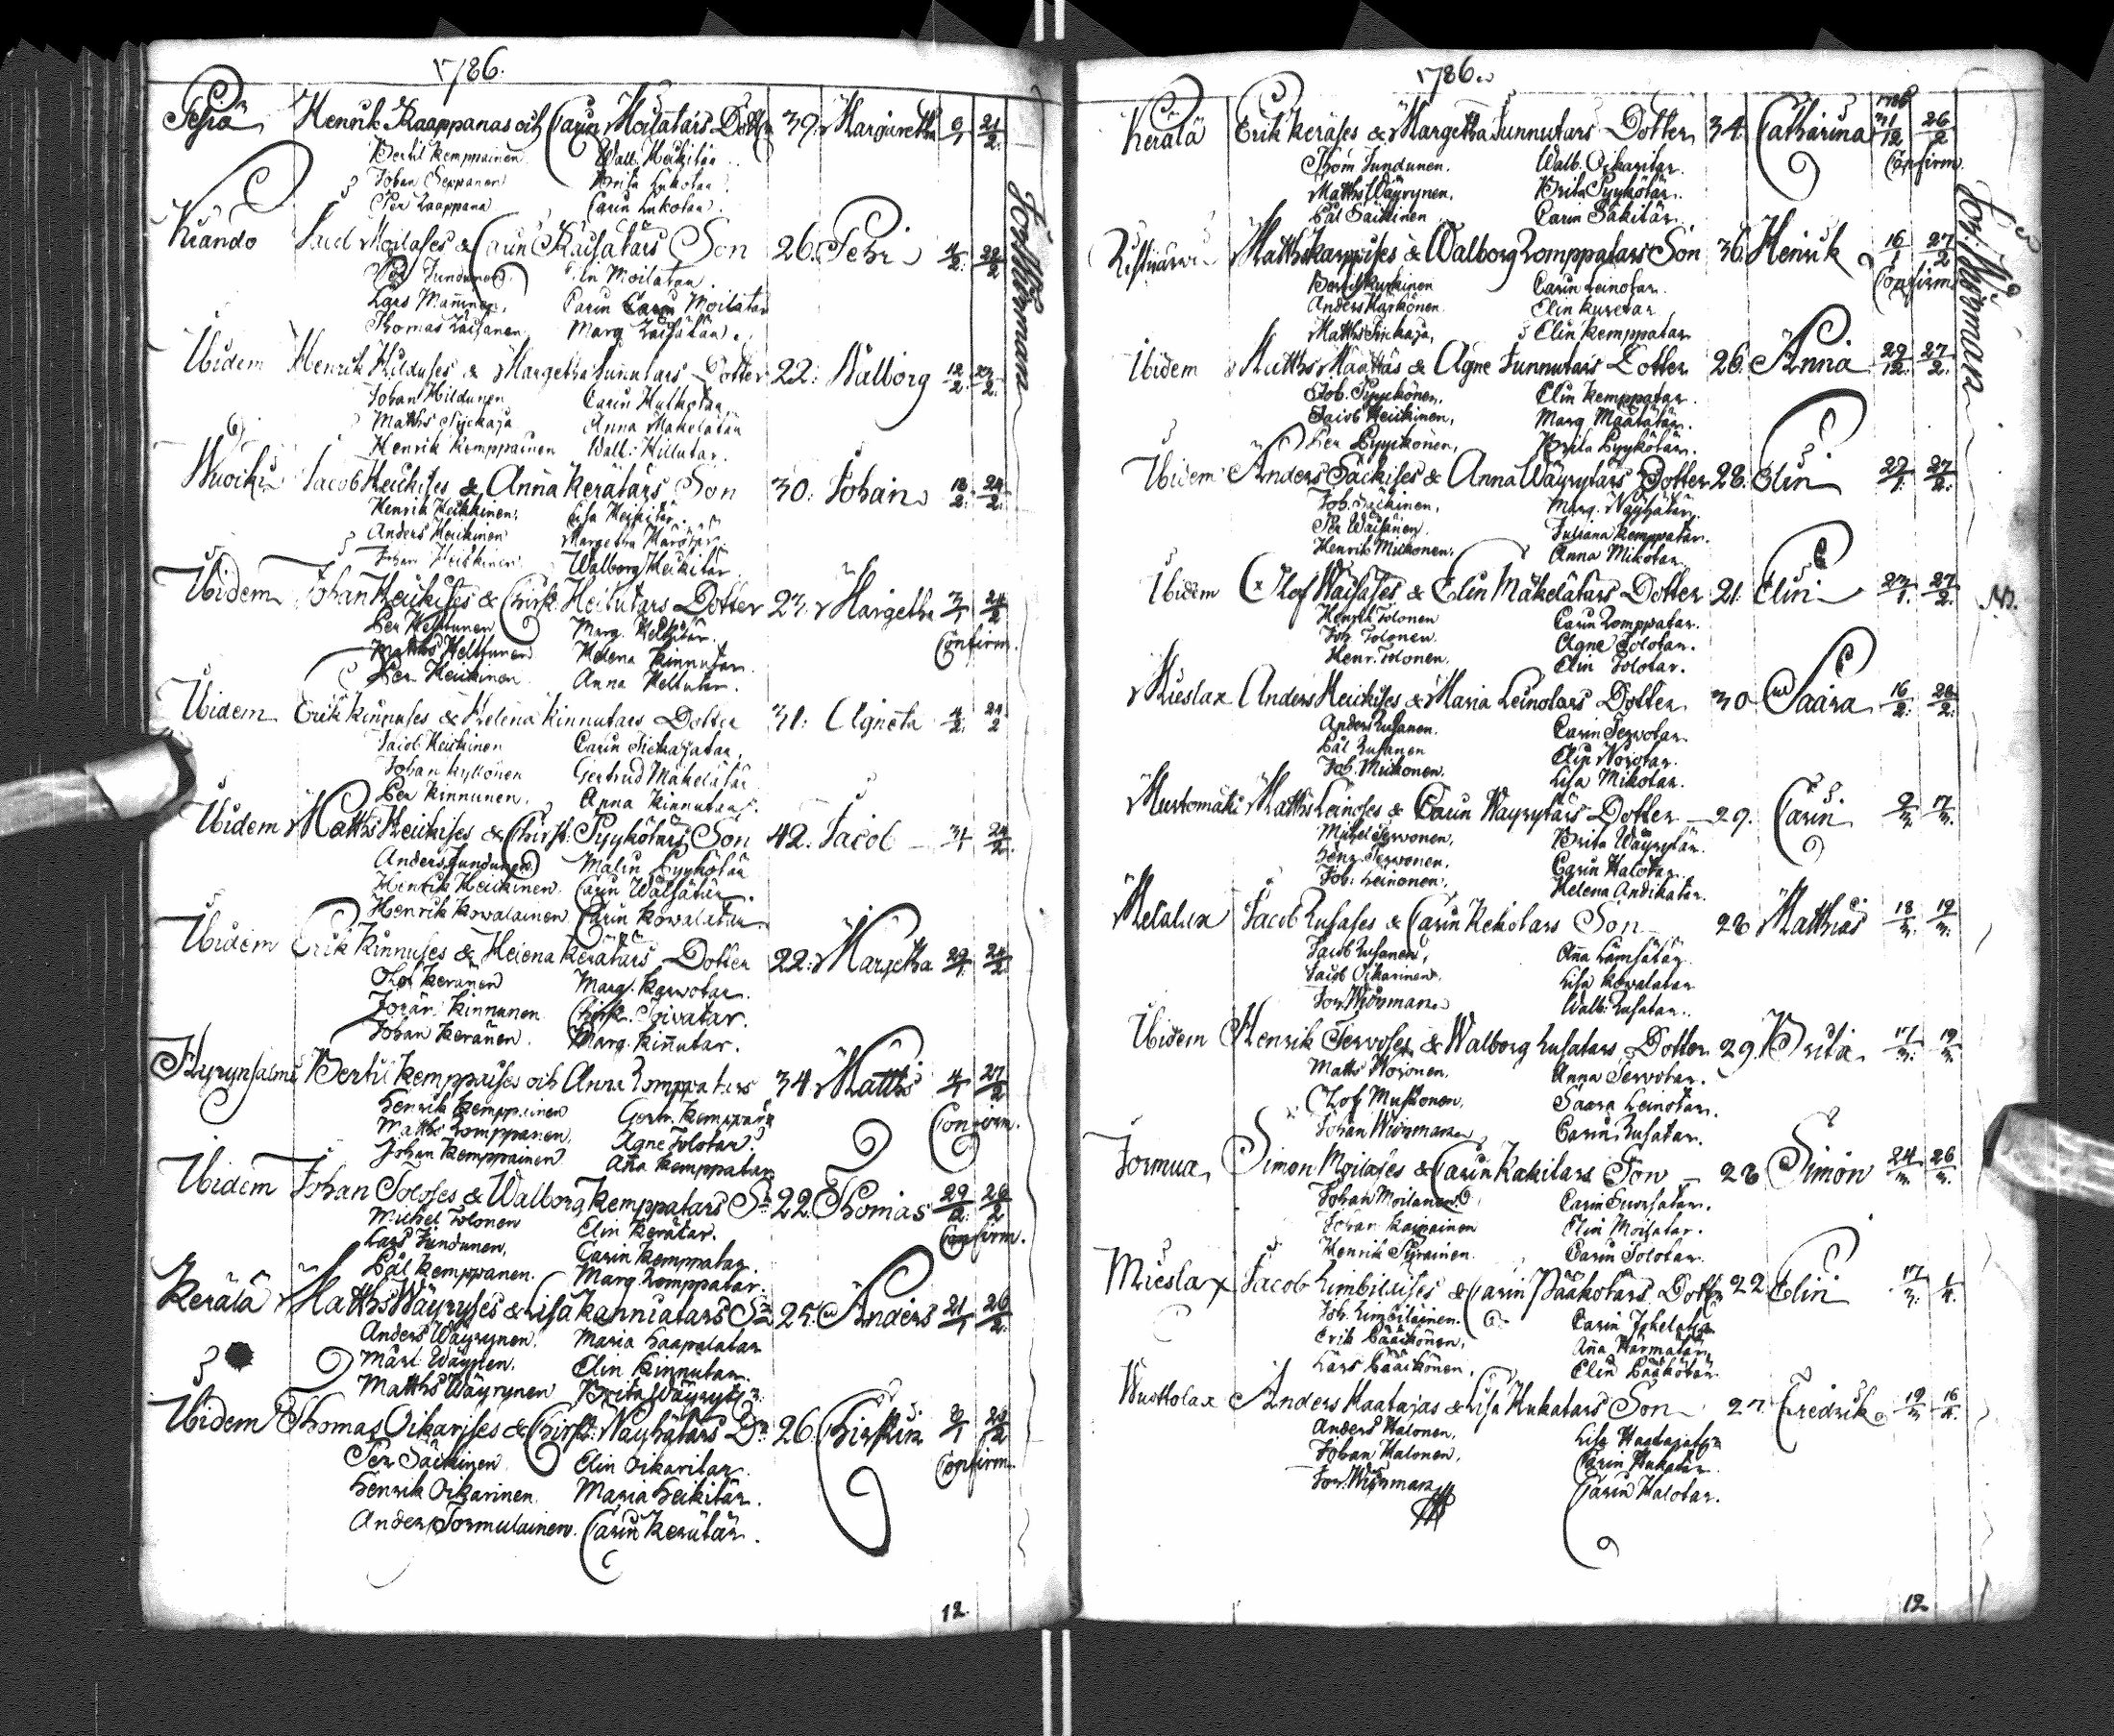 1786.
Henrik Kaappanas och Carin Moilatars Dotter 39. Margaretha 21/2
Bertil Kemppainen Walb. Heikitar
Johan Seppanen Brita Lukotar
Per Kaappana Carin Lukotar
Kiando Moilases & Carin Räisätärs Son 26. Pehr 4/2 22/2
Per Jundunen Elin Moilatar.
Lars Manninen, Carin Moilatar
Thomas Räisänen Marg. Räisätär.
Ibidem Henrik Hilduses & Margetha Junnutars Dotter 22. Walborg 12/2 23/2
Johan Hildunen Carin Hulkotar
Matths Tijckaja Anna Makelatar
Henrik Kemppainen Walb. Hillutar.
Wuocki Jacob Heickises & Anna Kerätärs Son 30. Johan 18/2 24/2
Henrik Heikkinen, Lisa Heikitär
Anders Heickinen Margetha
Johan Heickinen Walborg Heikitär
Ibidem Johan Heickises & Christ. Heitutars Dotter 23. Margetha 3/1 24/2
Per Heltunen Marg. Heikitär. Confirm.
Matths Helttunen Helena Kinnutar
Per Heickinen Anna Heltutar.
Ibidem Erik Kinnuses & Helena Kinnutars Dotter 31. Agneta 4/2 24/2
Jacob Heickinen Carin Tickajatar
Johan Kyllönen Gertrud Mäkelätär
Per Kinnunen. Anna Kinnutar
Ibidem Matths Heickises & Christ. Pyykötärs Son 42. Jacob 24/2
Anders Jundunen Malin Pyykötär
Henrik Heickinen. Carin Wäisätär
Henrik Kowalainen Carin Kowalatar
Ibidem Erik Kinnuses & Helena Kerätärs Dotter 22. Margetha 29/1 24/2
Olof Keränen Marg. Karwotar.
Jöran Kinnunen Christ. Toivatar.
Johan Keränen. Marg. Kinnutar.
Hyrynsalmi Bertil Kemppaises och Anna Romppatars 34. Matths 4/1 27/2
Henrik Kemppainen Gertr. Kemppatar Confirm.
Matths Romppanen, Agne Tolotar
Johan Kemppainen Anna Kemppatar
Ibidem Johan Toloses & Walborg Kemppatars Sn 22. Thomas 29/12 26/2
Michel Tolonen Elin Kerätar. Confirm.
Lars Jundunen, Carin Kemppatar.
Pål Kemppanen. Marg. Romppatar.
Kerälä Matths Wäyryses & Lisa Kanniatars Sn 25. Anders 21/1 26/2
Anders Wäyrynen. Maria Haapalatar
Mårt. Wäyrynen. Elin Kinnutar.
Matths Wäyrynen Brita Wäyrytr.
Ibidem Thomas Oikarises & Christ. Näyhätärs Dr 26. Christin 26/2
Per Säckinen Elin Oikaritar. Confirm.
Henrik Oikarinen. Maria Heikitär.
Anders Tormulainen. Carin Kerätär.
12
Förs Wirman
1786.
Kerälä Erik Keräses & Margetha Junnutars Dotter 34. Catharina 31/12 26/2
Thom. Jundunen. Walb. Oikaritar. Confirm.
Matths Wäyrynen. Brita Pyykötär.
Pål Säckinen Carin Säkitär.
Ristijärwi Matths Karppises & Walborg Romppatars Son 36. Henrik 16/1 27/2
Bertil Kurkinen Carin Leinotar. Confirm.
Anders Härkönen. Elin Kuretar
Matths Tickaja, Elin Kemppatar
Ibidem Matths Määttäs & Agne Junnutars Dotter 26. Anna 29/12 27/2
Joh. Pyyckönen, Elin Kemppatar.
Jacob Heickinen, Marg. Määtätär.
Per Pyyckönen, Brita Pyykötär.
Ibidem Anders Säckises & Anna Wäyrytärs Dotter 28. Elin 27/1 27/2
Joh. Säckinen, Marg. Näyhätär.
Per Wäisänen Juliana Kemppatar.
Henrik Mickonen. Anna Mikotar.
Ibidem Olof Wäisäses & Elin Mäkelätärs Dotter 21. Elin 23/1 27/2
Henrik Tolonen Carin Romppatar.
Joh. Tolonen. Agne Tolotar.
Henr. Tolonen. Elin Tolotar.
Mieslax Anders Heickises & Maria Leinotars Dotter 30 Saara 16/2 28/2
Anders Rusanen. Carin Terwotar.
Pål Rusanen Elin Nojotar.
Joh. Mickonen. Lisa Mikotar.
Murtomäki Matths Leinoses & Carin Wäyrytärs Dotter 29. Carin 9/3 17/3
Michel Terwonen, Brita Wäyrytär.
Henr. Terwonen, Carin Halotar.
Joh: Leinonen, Helena Andikatar.
Melalax Jacob Rusases & Carin Kekotars Son 28 Matthias 18/3 19/3
Jacob Rusanen, Anna Lämsätär.
Jacob Oikarinen. Lisa Kowalatar
For. Wirman Walb: Rusatar.
Ibidem Henrik Terwoses & Walborg Rusatars Dotter 29. Brita 17/3 19/3
Matts Nojonen, Anna Terwotar.
Olof Mustonen. Saara Leinotar.
Johan Wirman Carin Rusatar.
Jormua Simon Moilases & Carin Kakitars Son 28 Simon 24/3 26/3
Johan Moilanen Carin
Johan Kainainen Elin Moilatar.
Henrik Carin Tolotar.
Mieslax Jacob Limbiläises & Carin Pääkötärs Dotter 22. Elin 17/3 1/4
Joh. Limbiläinen. Carin
Erik Pääckönen, Anna Härmätär,
Lars Pääckönen, Elin Pääkötär
Wuottolax Anders Haatajas & Lisa Hukatars Son 27. Fredrik 19/3 16/4
Anders Halonen, Lisa Haatajatar
Johan Halonen, Carin Hukatar
For. Wirman Carin Halotar.
12